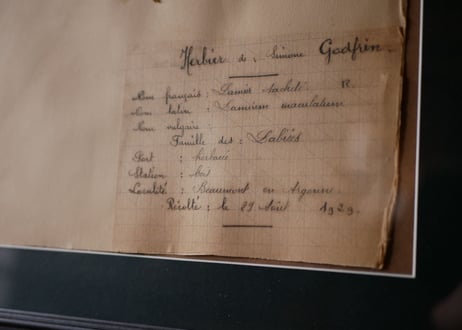 Herbier de : Simone Godfrin.
Nom français : Lamier tacheté. R.
Nom latin : Lamium maculatum
Nom vulgaire :
Famille des : Labiées
Port : herbacée
Station : bois
Localité : Beaumont en Argonne.
Récolté : le 29 Août 1929.